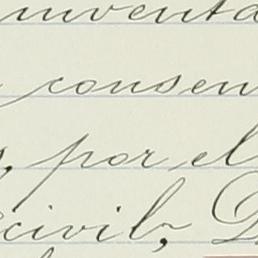 inventa
consen
, por el
civil,